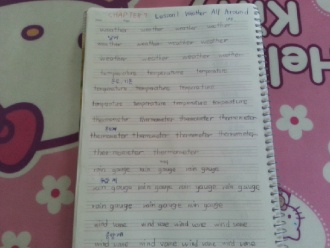 CHAPTER 7 Lesson 1 Weather All Around
weather weather weather weather
날씨
weather weather weather weather
weather weather weather weather
temperature temperature temperature
온도, 기온
temperature temperature temperature
temperature temperature temperature temperature
thermometer thermometer thermometer thermometer
thermometer thermometer thermometer thermometer
thermometer thermometer
rain gauge rain gauge rain gauge
rain gauge rain gauge rain gauge rain gauge
rain gauge rain gauge rain gauge
wind vane wind vane wind vane wind vane
wind vane wind vane wind vane wind vane